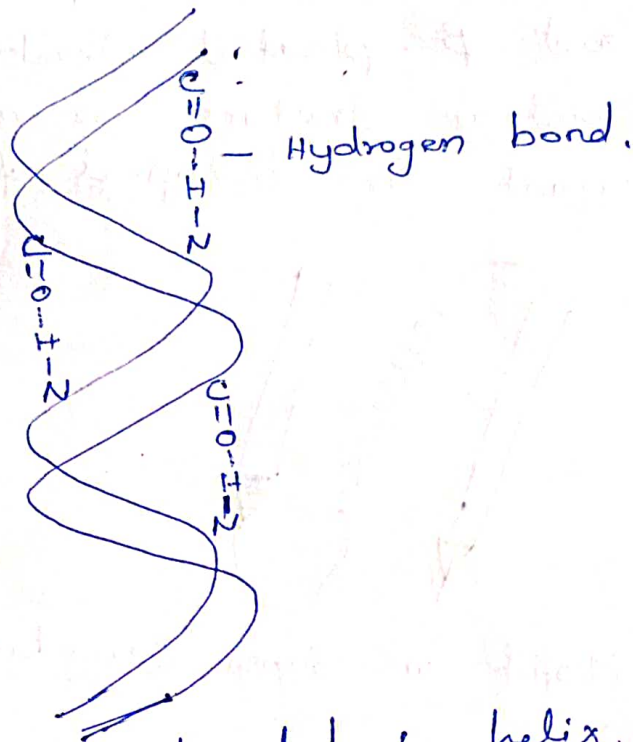 C
||
O
¦
H
|
N
— Hydrogen bond.
C
||
O
¦
H
|
N
C
||
O
¦
H
|
N
helix.